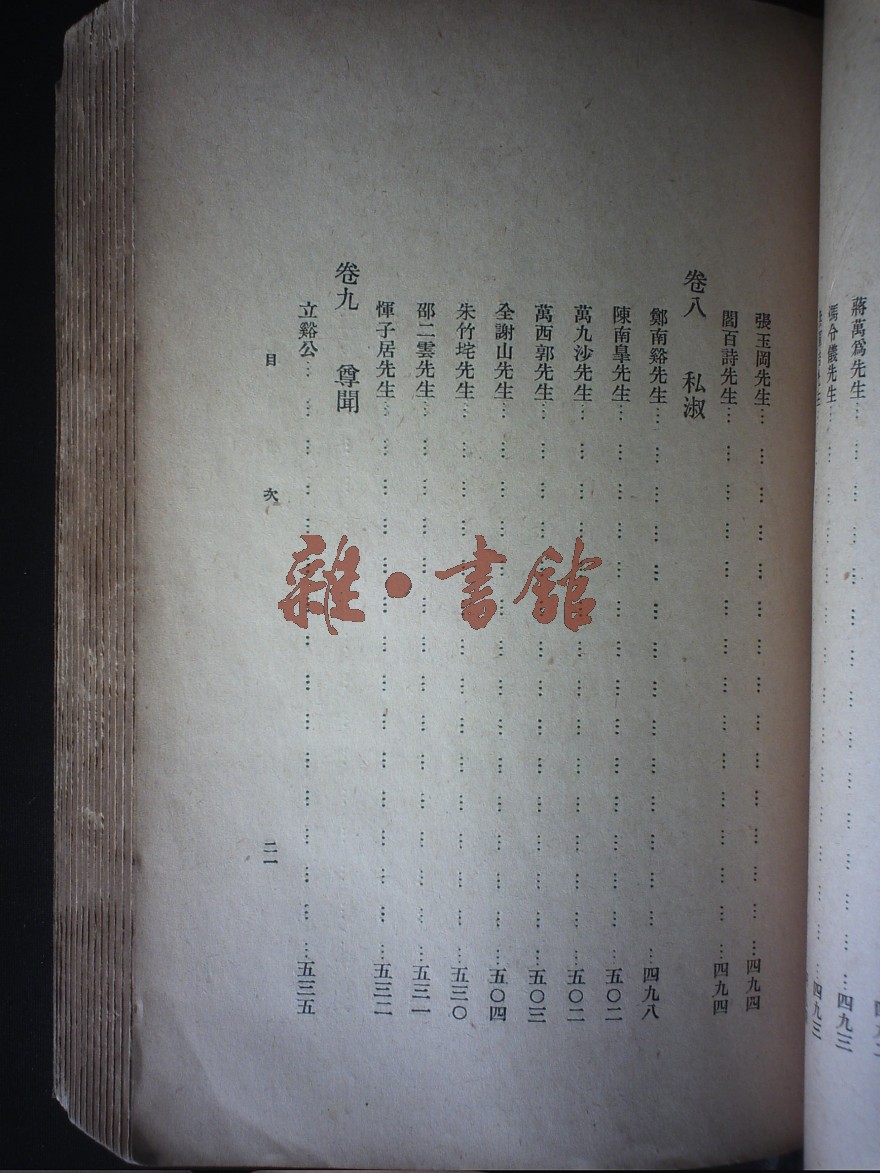 蔣萬爲先生……四九三
馮令儀先生……四九三
張玉岡先生……四九四
閻百詩先生……四九四
卷八 私淑
鄭南谿先生……四九八
陳南臯先生……五〇二
萬九沙先生……五〇二
萬西郭先生……五〇三
全謝山先生……五〇四
朱竹垞先生……五三〇
邵二雲先生……五三一
惲子居先生……五三二
卷九 尊聞
立谿公……五三五
目次 二一
雜·書館